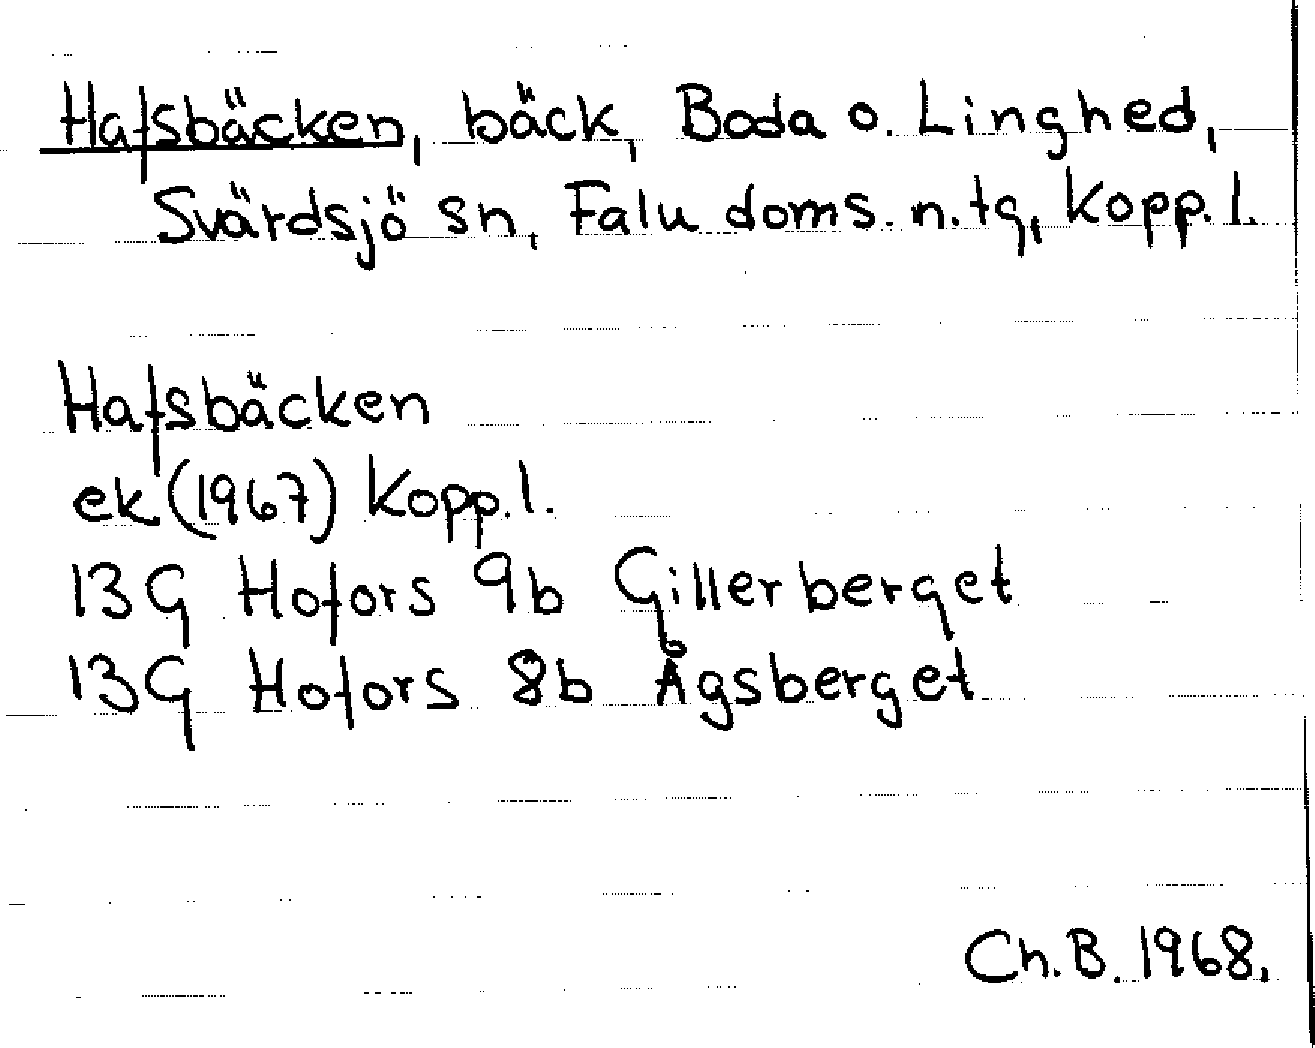 Hafsbäcken, bäck, Boda o. Linghed,
Svärdsjö sn, Falu doms. n.tg, Kopp.l.
Hafsbäcken
ek (1967) Kopp.l.
13G Hofors 9b Gillerberget
13G Hofors 8b Ågsberget
Ch.B. 1968.